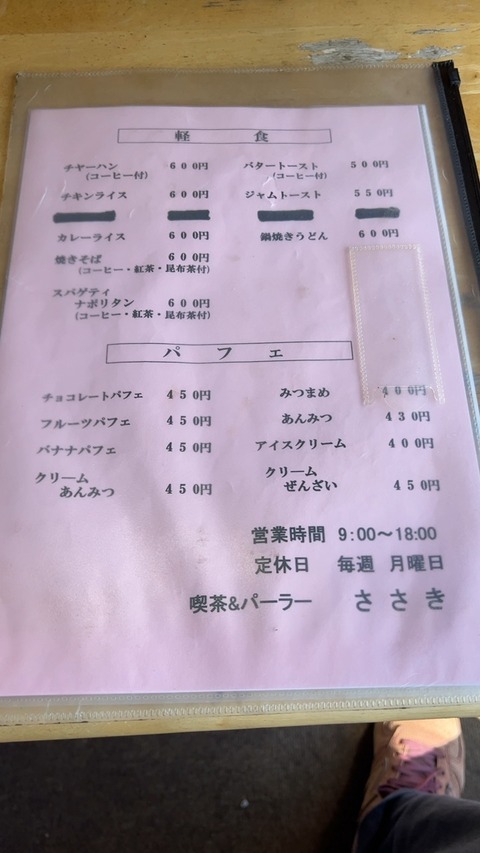 軽食
チャーハン 600円
(コーヒー付)
チキンライス 600円
カレーライス 600円
焼きそば 600円
(コーヒー・紅茶・昆布茶付)
スパゲティ
ナポリタン 600円
(コーヒー・紅茶・昆布茶付)
バタートースト 500円
(コーヒー付)
ジャムトースト 550円
鍋焼きうどん 600円
パフェ
チョコレートパフェ 450円
フルーツパフェ 450円
バナナパフェ 450円
クリーム
あんみつ 450円
みつまめ 400円
あんみつ 430円
アイスクリーム 400円
クリーム
ぜんざい 450円
営業時間 9:00〜18:00
定休日 毎週 月曜日
喫茶&パーラー ささき